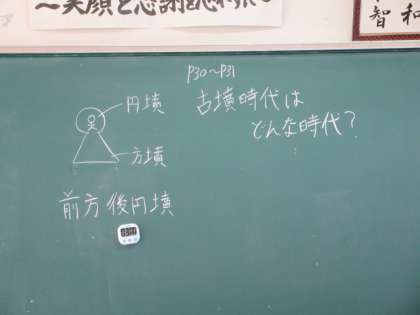 ～笑顔と感謝と思いやり～
智和
P30～P31
古墳時代は
どんな時代？
円墳
方墳
前方後円墳